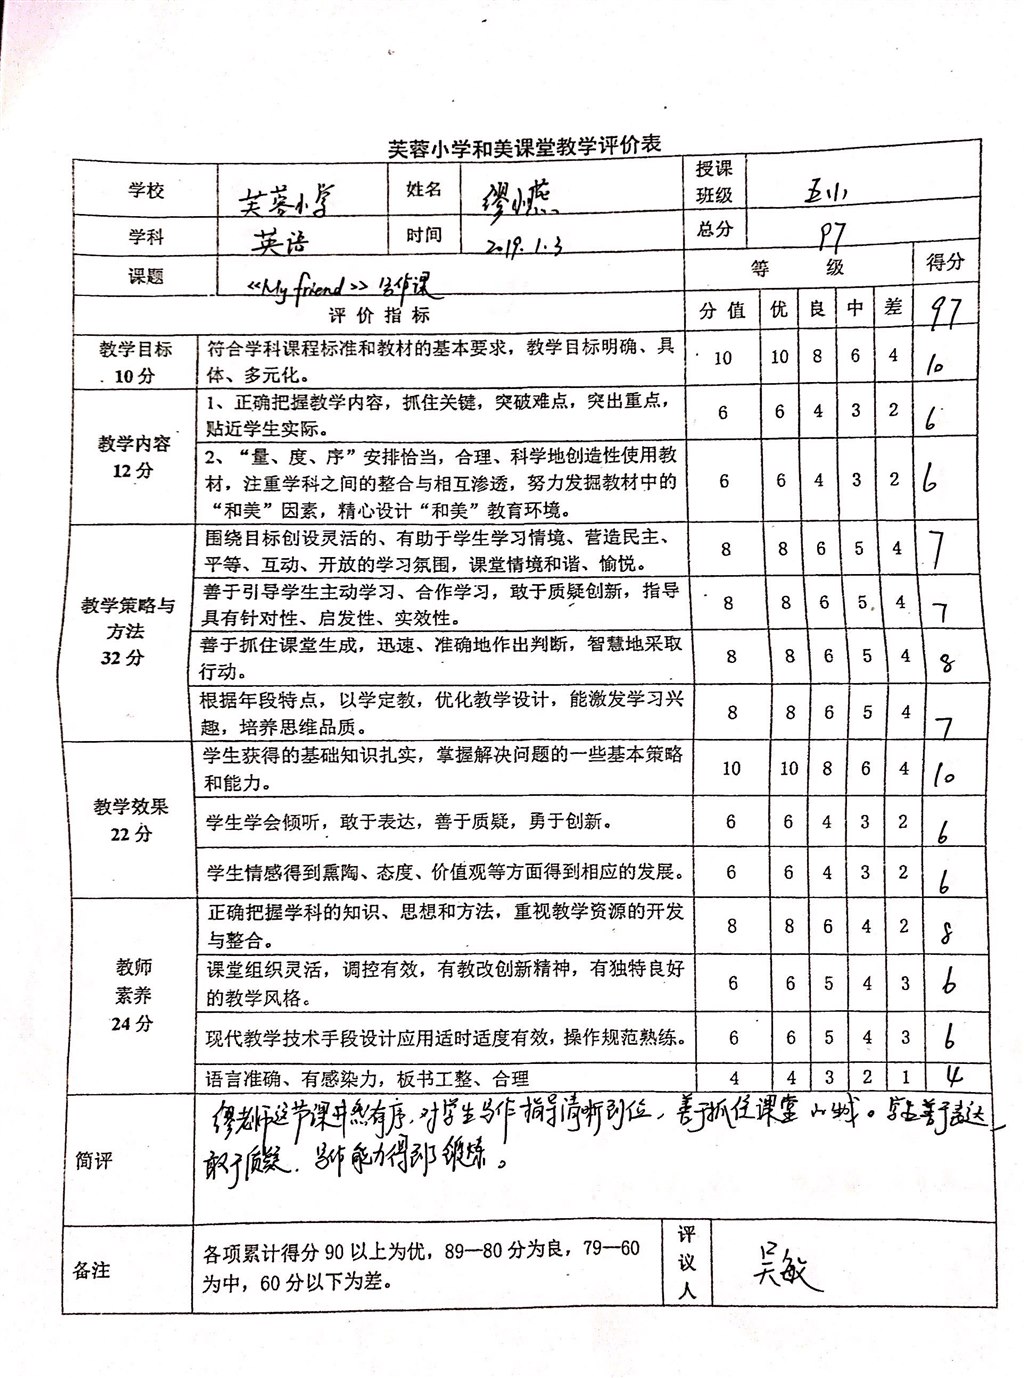 芙蓉小学和美课堂教学评价表
学校 芙蓉小学 姓名 缪小燕 授课班级
学科 英语 时间 2019.1.3 总分 97
课题 《My friend》写作课 等 级 得分
评 价 指 标 分 值 优 良 中 差 97
教学目标 10分 符合学科课程标准和教材的基本要求，教学目标明确、具
体、多元化。 10 10 8 6 4 10
教学内容 12分 1、正确把握教学内容，抓住关键，突破难点，突出重点，
贴近学生实际。 6 6 4 3 2 6
2、“量、度、序”安排恰当，合理、科学地创造性使用教
材，注重学科之间的整合与相互渗透，努力发掘教材中的
“和美”因素，精心设计“和美”教育环境。 6 6 4 3 2 6
教学策略与方法 32分 围绕目标创设灵活的、有助于学生学习情境、营造民主、
平等、互动、开放的学习氛围，课堂情境和谐、愉悦。 8 8 6 5 4 7
善于引导学生主动学习、合作学习，敢于质疑创新，指导
具有针对性、启发性、实效性。 8 8 6 5 4 7
善于抓住课堂生成，迅速、准确地作出判断，智慧地采取
行动。 8 8 6 5 4 8
根据年段特点，以学定教，优化教学设计，能激发学习兴
趣，培养思维品质。 8 8 6 5 4 7
教学效果 22分 学生获得的基础知识扎实，掌握解决问题的一些基本策略
和能力。 10 10 8 6 4 10
学生学会倾听，敢于表达，善于质疑，勇于创新。 6 6 4 3 2 6
学生情感得到熏陶、态度、价值观等方面得到相应的发展。 6 6 4 3 2 6
教师素养 24分 正确把握学科的知识、思想和方法，重视教学资源的开发
与整合。 8 8 6 4 2 8
课堂组织灵活，调控有效，有教改创新精神，有独特良好
的教学风格。 6 6 5 4 3 6
现代教学技术手段设计应用适时适度有效，操作规范熟练。 6 6 5 4 3 6
语言准确、有感染力，板书工整、合理 4 4 3 2 1 4
简评 缪老师这节课井然有序，对学生写作指导清晰到位，善于抓住课堂生成。学生善于表达，
敢于质疑，写作能力得到了锻炼。
备注 各项累计得分90以上为优，89—80分为良，79—60
为中，60分以下为差。
评议人 吴敏